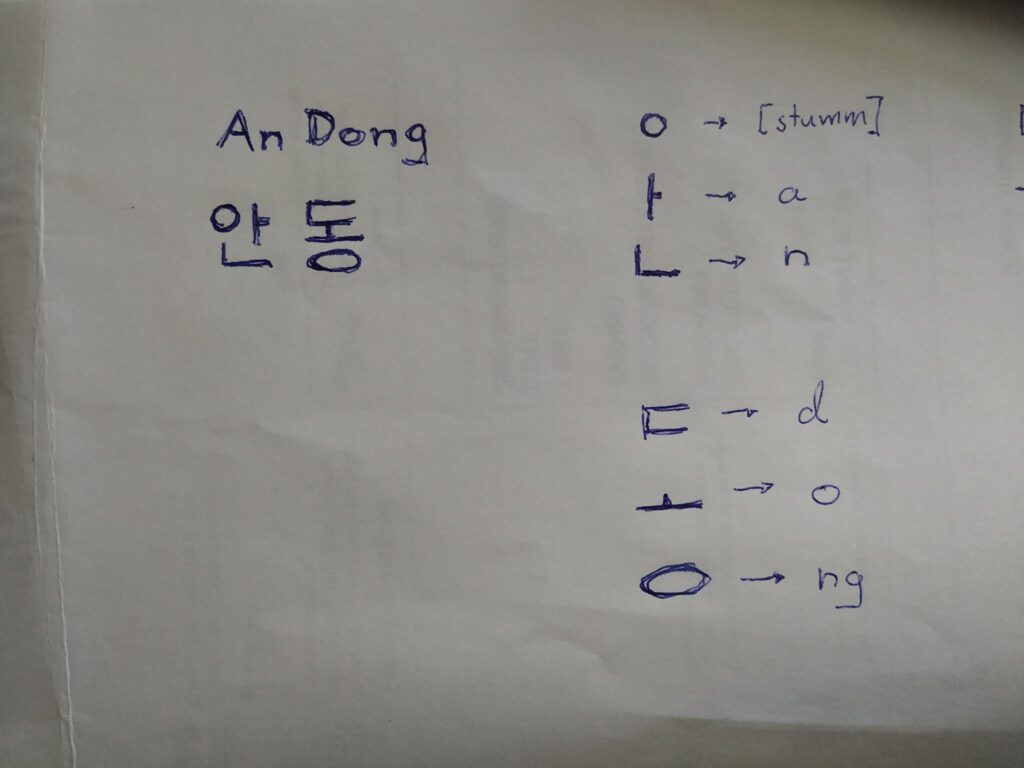 An Dong
안 동
ㅇ → [stumm]
ㅏ → a
ㄴ → n
ㄷ → d
ㅗ → o
ㅇ → ng